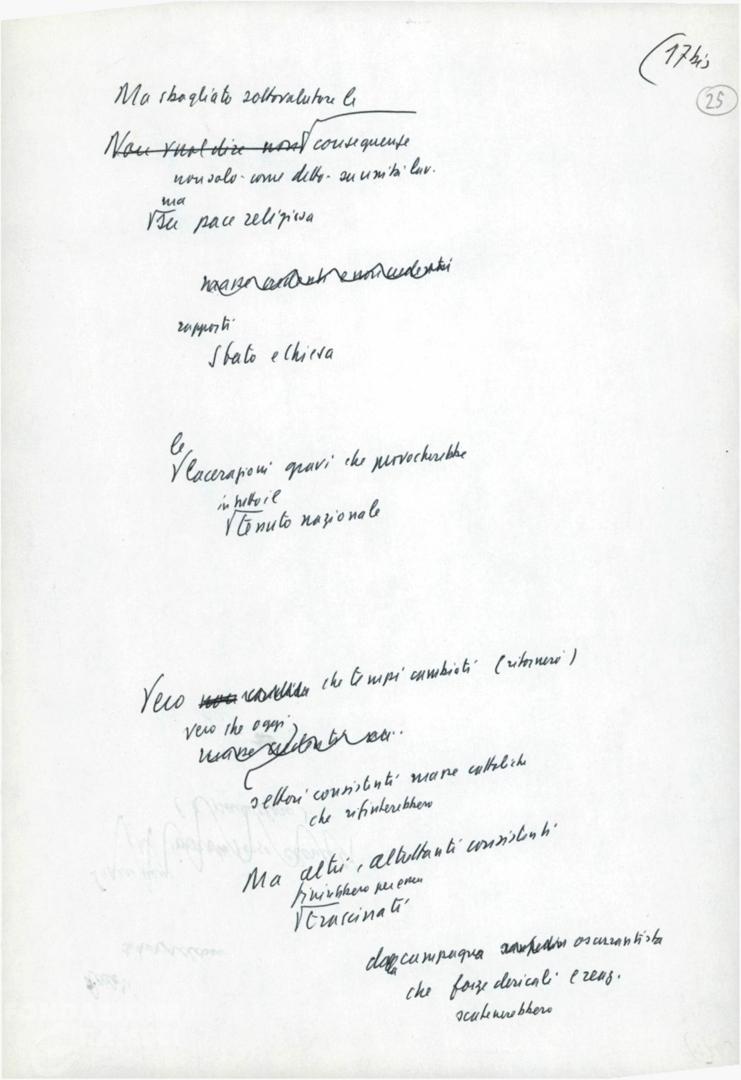 (17 bis
25
Ma sbagliato sottovalutare le
Non vuol dire non conseguenze
non solo - come detto - su unità lav.
ma
su pace religiosa
masse credenti e non credenti
rapporti
Stato e Chiesa
le
lacerazioni gravi che provocherebbe
in tutto il
tessuto nazionale
Vero che tempi cambiati (ritornerò)
vero che oggi
masse
settori consistenti masse cattoliche
che rifiuterebbero
Ma altri, altrettanti consistenti
finirebbero per essere
trascinati
dalla campagna oscurantista
che forze clericali e reaz.
scatenerebbero